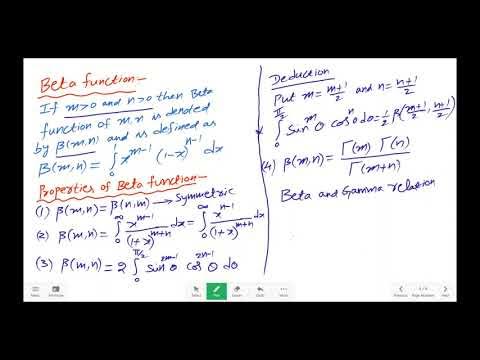 Beta function-
If m>0 and n>0 then Beta
function of m,n is denoted
by β(m,n) and is defined as
β(m,n) = ∫₀¹ x^{m-1} (1-x)^{n-1} dx
Properties of Beta function-
(1) β(m,n) = β(n,m) → Symmetric
(2) β(m,n) = ∫₀^∞ x^{m-1}/(1+x)^{m+n} dx = ∫₀^∞ x^{n-1}/(1+x)^{m+n} dx
(3) β(m,n) = 2 ∫₀^{π/2} sin^{2m-1}θ cos^{2n-1}θ dθ
Deduction
Put m = (m+1)/2 and n = (n+1)/2
∫₀^{π/2} Sin^m θ cos^n θ dθ = 1/2 β((m+1)/2, (n+1)/2)
(4) β(m,n) = Γ(m) Γ(n) / Γ(m+n)
Beta and Gamma relation